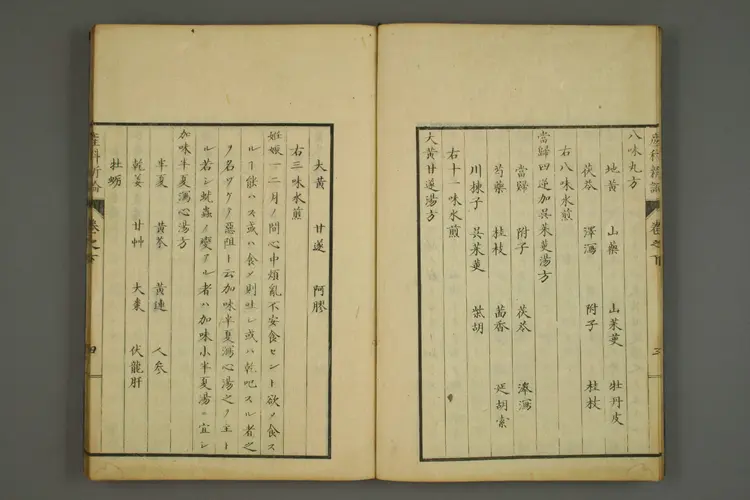 八味丸方
地黄 山藥 山茱萸 牡丹皮
茯苓 澤瀉 附子 桂枝
右八味水煎
當歸四逆加呉茱萸湯方
當歸 附子 茯苓 澤瀉
芍藥 桂枝 茴香 延胡索
川揀子 呉茱萸 柴胡
右十一味水煎
大黄甘遂湯方
大黄 甘遂 阿膠
右三味水煎
妊娠一二月ノ間心中煩亂不安食セント欲メ食ス
ルヿ能ハス或ハ食メ則吐シ或ハ乾呕スル者之
ヲ名ツケテ惡阻ト云加味半夏瀉心湯之ヲ主ト
ル若シ蚘蟲ノ變アル者ハ加味小半夏湯ニ宜シ
加味半夏瀉心湯方
半夏 黄芩 黄連 人參
乾姜 甘艸 大棗 伏龍肝
牡蛎
産科新論 卷之下 四